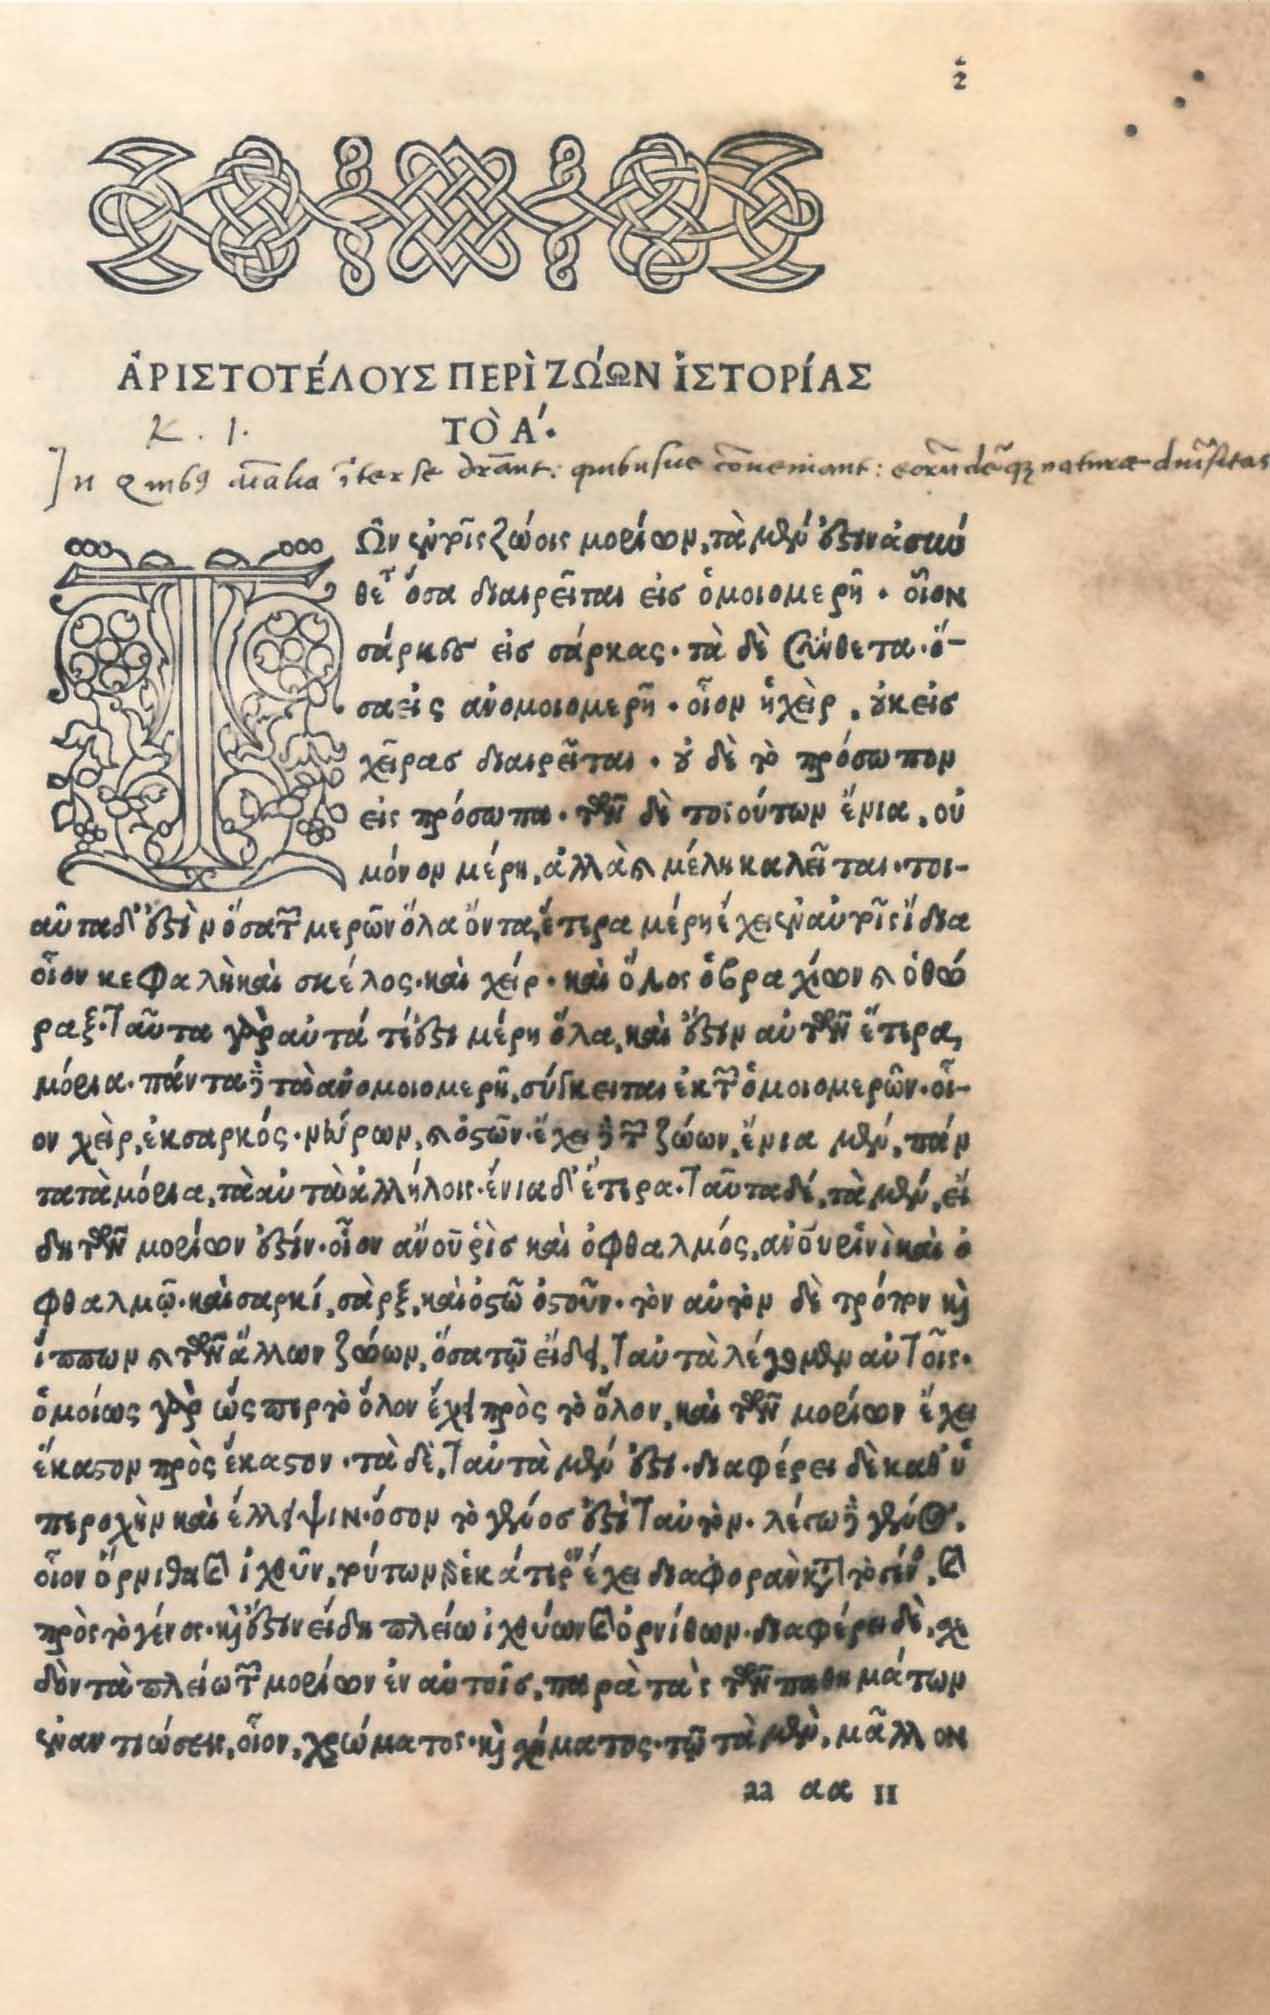 2
ἈΡΙΣΤΟΤΈΛΟΥΣ ΠΕΡῚ ΖΩΏΩΝ ἹΣΤΟΡΊΑΣ
ΤῸ Α΄.
K. 1.
In quibus animalia inter se drant: quibusue conueniant: eorundemque naturae diuersitas
ΤῶΝ ἐν τοῖς ζώοις μορίων, τὰ μὲν ἐστιν ἀσύν
θετα ὅσα διαιρεῖται εἰς ὁμοιομερῆ . οἷον
σάρκες εἰς σάρκας . τὰ δὲ σύνθετα . ὅ-
σα εἰς ἀνομοιομερῆ . οἷον ἡ χεὶρ, οὐκ εἰς
χεῖρας διαιρεῖται . οὐ δὲ τὸ πρόσωπον
εἰς πρόσωπα . τῶν δὲ τοιούτων ἔνια, οὐ
μόνον μέρη, ἀλλὰ καὶ μέλη καλεῖται . τοι-
αῦτα δ' ἐστὶν ὅσα τῶν μερῶν ὅλα ὄντα, ἕτερα μέρη ἔχει ἐν αὐτοῖς ἴδια
οἷον κεφαλὴ καὶ σκέλος . καὶ χείρ . καὶ ὅλος ὁ βραχίων καὶ ὁ θώ
ραξ . Ταῦτα γὰρ αὐτά τέ ἐστι μέρη ὅλα, καὶ ἔστιν αὐτῶν ἕτερα,
μόρια . πάντα δὲ τὰ ἀνομοιομερῆ, σύγκειται ἐκ τῶν ὁμοιομερῶν . οἷ-
ον χεὶρ, ἐκ σαρκός . νεύρων, καὶ ὀστῶν . ἔχει δὲ τῶν ζώων, ἔνια μὲν, πάν
τα τὰ μόρια, τὰ αὐτὰ ἀλλήλοις . ἔνια δ' ἕτερα . Ταῦτα δέ, τὰ μὲν, εἴ
δη τῶν μορίων ἐστίν . οἷον ἀν οῦ ῥὶς καὶ ὀφθαλμός, ἀνοῦ ῥινὶ καὶ ὀ
φθαλμῷ . καὶ σαρκί, σὰρξ, καὶ ὀστῷ ὀστοῦν . τὸν αὐτὸν δὲ τρόπον καὶ
ἵππων καὶ τῶν ἄλλων ζώων, ὅσα τῷ εἴδει, Ταυτὰ λέγομεν αὑΤοῖς .
ὁμοίως γὰρ ὥς περ τὸ ὅλον ἔχει πρὸς τὸ ὅλον, καὶ τῶν μορίων ἔχει
ἕκαστον πρὸς ἕκαστον . τὰ δὲ, Ταυτὰ μὲν ἐστι . διαφέρει δὲ καθ' ὑ
περοχὴν καὶ ἔλλειψιν . ὅσον τὸ γένος ἐστὶ Ταυτὸν . λέγω δὲ γένος,
οἷον ὄρνιθα καὶ ἰχθῦν, τούτων γὰρ ἑκάτερον ἔχει διαφορὰν κατὰ τὸ γένος, καὶ
πρὸς τὸ γένος . καὶ ἔστιν εἴδη πλείω ἰχθύων καὶ ὀρνίθων . διαφέρει δὲ, σχε
δὸν τὰ πλείω τῶν μορίων ἐν αὐτοῖς, παρὰ τὰς τῶν παθημάτων
ἐναντιώσεις, οἷον, χρώματος . καὶ σχήματος . τῷ τὰ μὲν, μᾶλλον
aa αα II